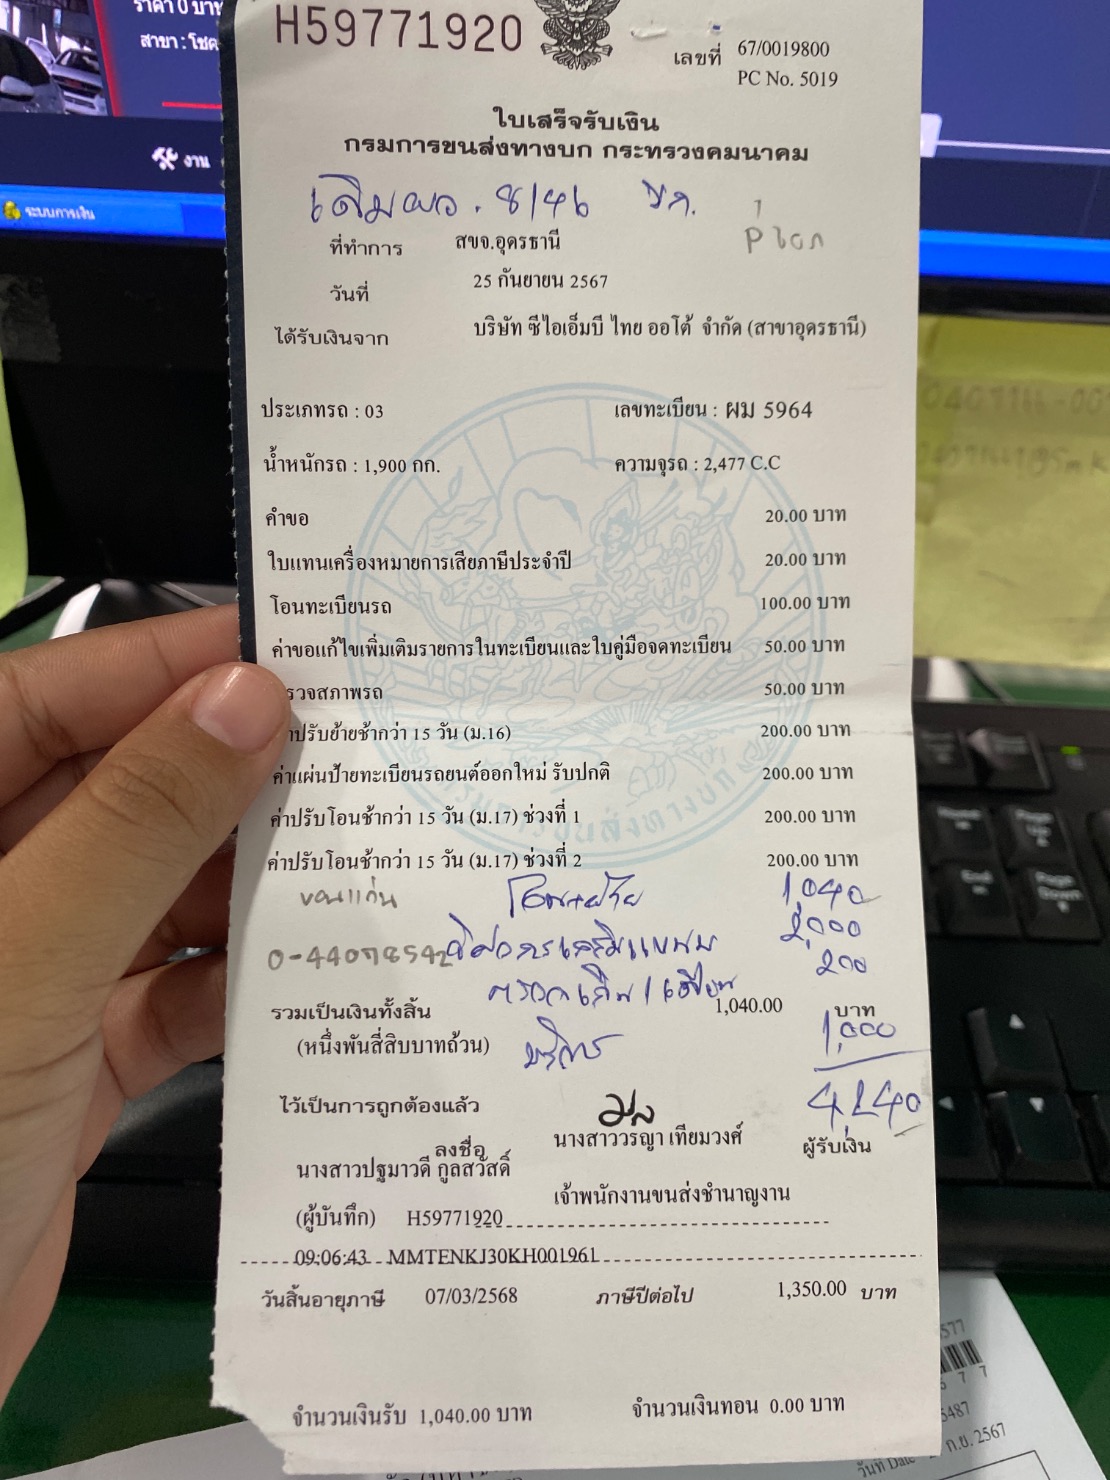 ราคา 0 บาท
สาขา : โชค
งาน
ระบบการเงิน
H59771920
เลขที่ 67/0019800
PC No. 5019
ใบเสร็จรับเงิน
กรมการขนส่งทางบก กระทรวงคมนาคม
เดิม ผอ. 8146 ขก.
ที่ทำการ สขจ.อุดรธานี
วันที่ 25 กันยายน 2567
ได้รับเงินจาก บริษัท ซีไอเอ็มบี ไทย ออโต้ จำกัด (สาขาอุดรธานี)
ประเภทรถ : 03 เลขทะเบียน : ผม 5964
น้ำหนักรถ : 1,900 กก. ความจุรถ : 2,477 C.C
คำขอ 20.00 บาท
ใบแทนเครื่องหมายการเสียภาษีประจำปี 20.00 บาท
โอนทะเบียนรถ 100.00 บาท
ค่าขอแก้ไขเพิ่มเติมรายการในทะเบียนและใบคู่มือจดทะเบียน 50.00 บาท
รวจสภาพรถ 50.00 บาท
าปรับย้ายช้ากว่า 15 วัน (ม.16) 200.00 บาท
ค่าแผ่นป้ายทะเบียนรถยนต์ออกใหม่ รับปกติ 200.00 บาท
ค่าปรับโอนช้ากว่า 15 วัน (ม.17) ช่วงที่ 1 200.00 บาท
ค่าปรับโอนช้ากว่า 15 วัน (ม.17) ช่วงที่ 2 200.00 บาท
กรมการขนส่งทางบก
ขอนแก่น โอน+ย้าย 1,040
2,000
200
รวมเป็นเงินทั้งสิ้น 1,040.00 บาท
(หนึ่งพันสี่สิบบาทถ้วน) บริการ 1,000
4,240
ไว้เป็นการถูกต้องแล้ว
ลงชื่อ นางสาววรญา เทียมวงศ์ ผู้รับเงิน
นางสาวปฐมาวดี กูลสวัสดิ์
เจ้าพนักงานขนส่งชำนาญงาน
(ผู้บันทึก) H59771920
09:06:43 MMTENKJ30KH001961
วันสิ้นอายุภาษี 07/03/2568 ภาษีปีต่อไป 1,350.00 บาท
จำนวนเงินรับ 1,040.00 บาท จำนวนเงินทอน 0.00 บาท
5487
วันที่ Date ก.ย. 2567